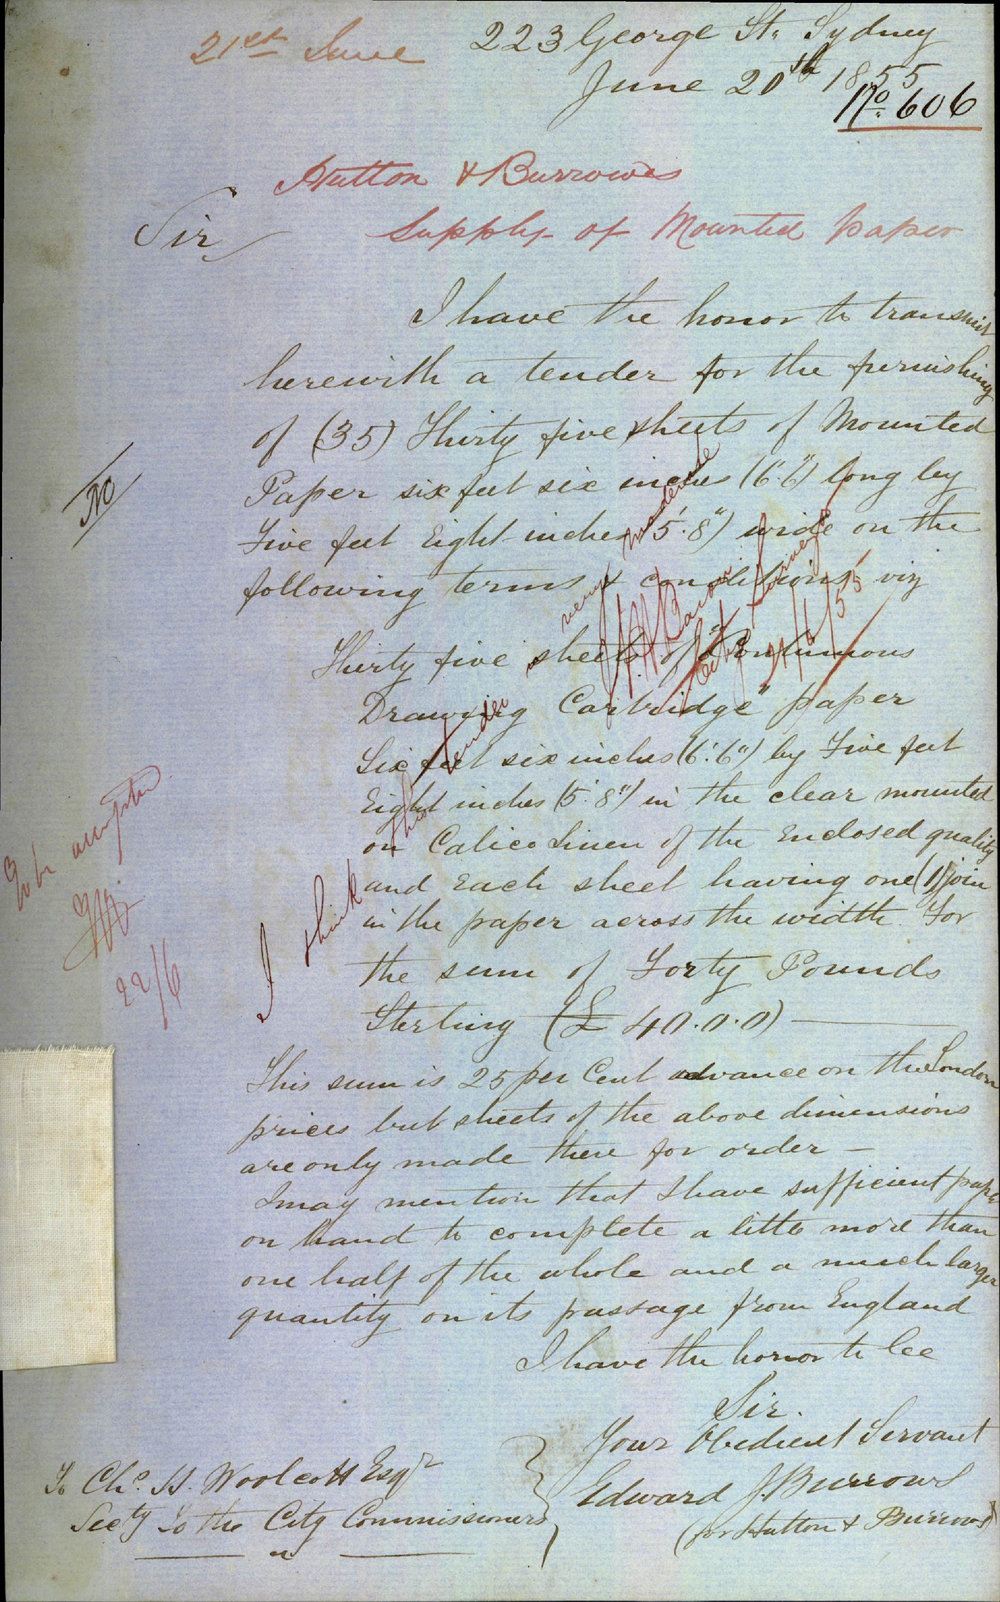 21st June
223 George St. Sydney
June 20th 1855
No. 606
Hutton & Burrowes
Supply of Mounted paper
Sir
I have the honor to transmit
herewith a tender for the furnishing
of (35) Thirty five sheets of Mounted
Paper six feet six inches (6'.6") long by
Five feet Eight inches (5'.8") wide on the
following terms & conditions viz
Thirty five sheets of "Continuous
Drawing Cartridge" paper
Six feet six inches (6'.6") by Five feet
Eight inches (5'.8") in the clear mounted
on Calico Linen of the Enclosed quality
and Each sheet having one (1) join
in the paper across the width. For
the sum of Forty Pounds
Sterling (£40.0.0)
This sum is 25 per Cent advance on the London
prices but sheets of the above dimensions
are only made there for order —
I may mention that I have sufficient paper
on hand to complete a little more than
one half of the whole and a much larger
quantity on its passage from England
I have the honor to be
Sir.
Your Obedient Servant
Edward J. Burrows
(for Hutton & Burrows)
To Chs. H. Woolcott Esqr
Secty to the City Commissioners
No
I think this tender is very moderate
City Surveyor
21/6/55
To be accepted
22/6